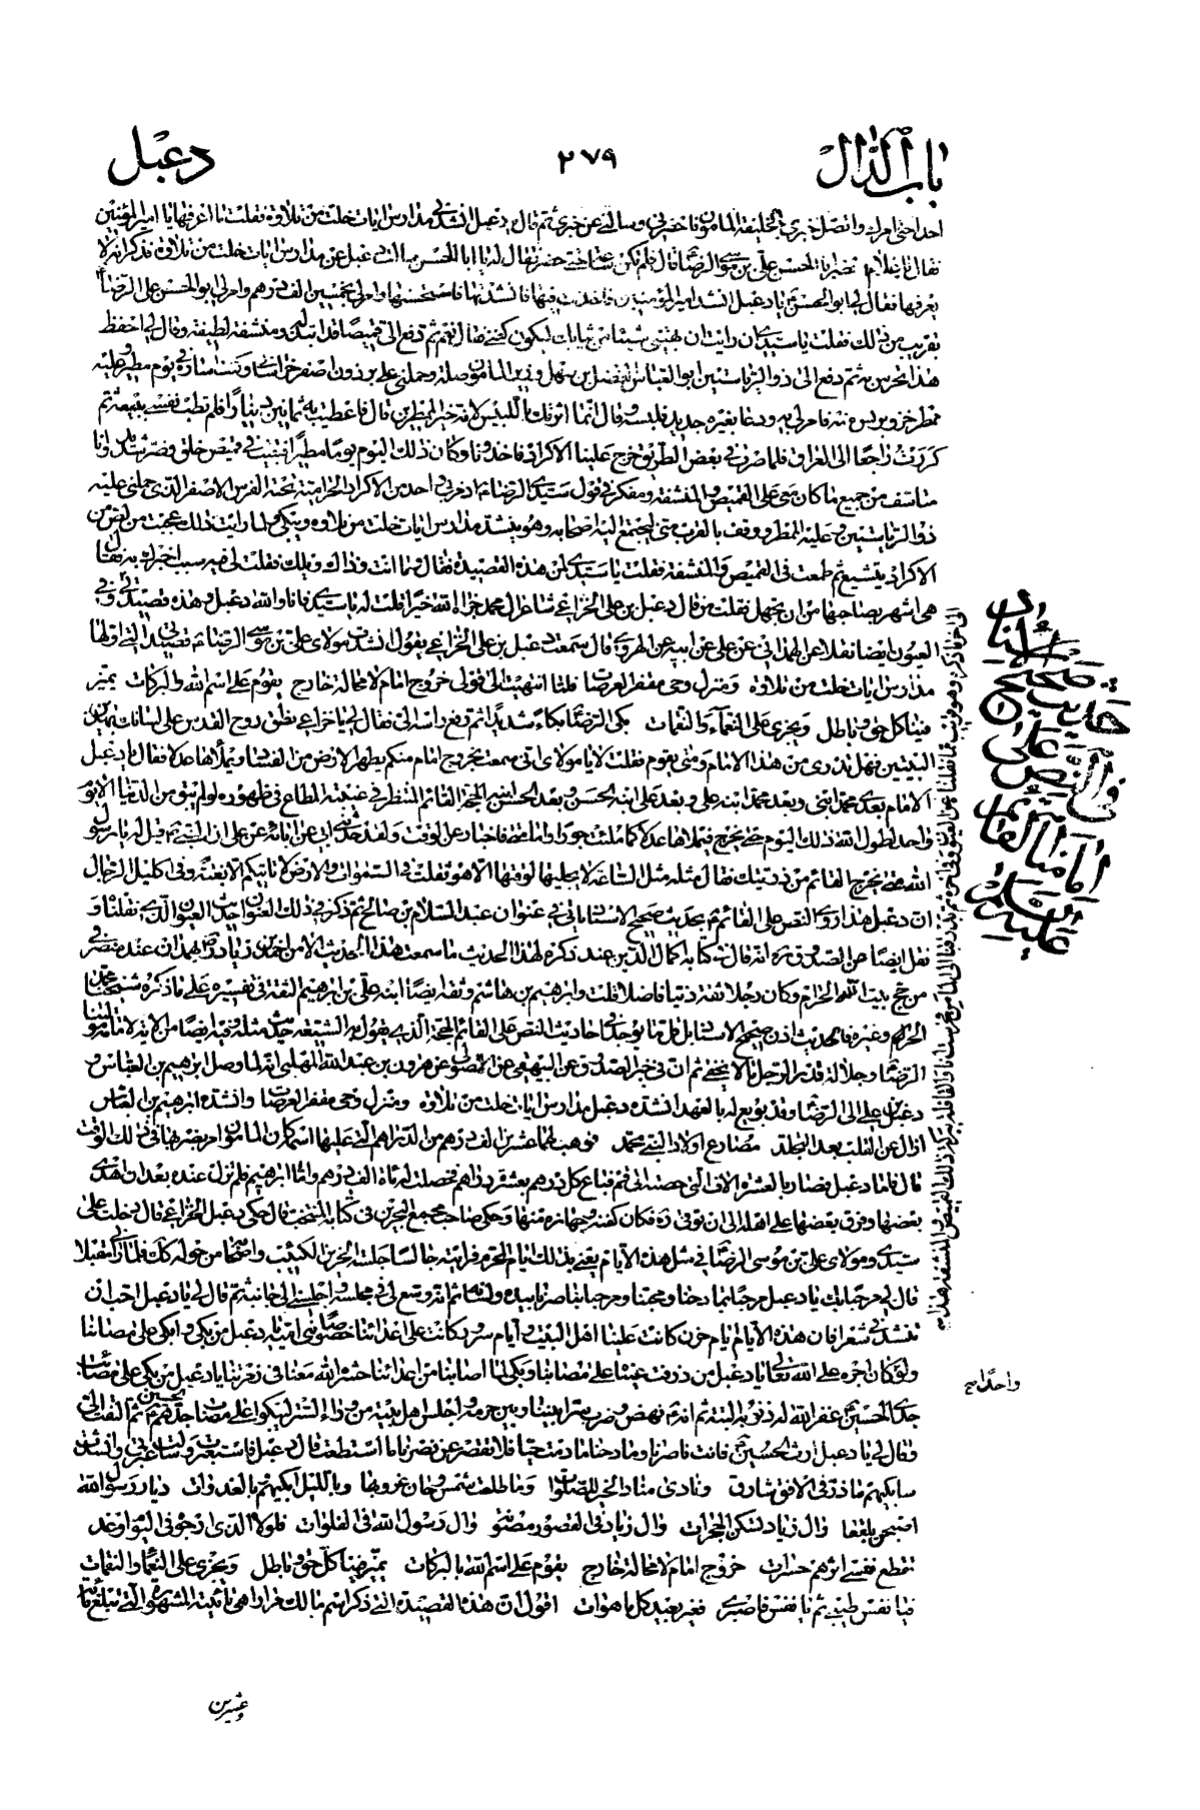 باب الدال
٢٧٩
دعبل
احدا حتى امرك واتصل خبرى بالخليفة المامون فاحضرنى وسالنى عن خبرى ثم قال يا دعبل انشدنى مدارس ايات خلت من تلاوة فقلت ما اعرفها يا امير المؤمنين
فقال يا غلام احضر ابا الحسن على بن موسى الرضا قال فلم تكن ساعة حتى حضر فقال له يا ابا الحسن سالت دعبل عن مدارس ايات خلت من تلاوة فذكر انه لا
يعرفها فقال لى ابو الحسن يا دعبل انشد امير المؤمنين فاخذت فيها فانشدتها فاستحسنها وامر لى بخمسين الف درهم وامر لى ابو الحسن على الرضا
بقريب من ذلك فقلت يا سيدى ان رايت ان تهبنى شيئا من ثيابك ليكون كفنى فقال نعم ثم دفع الى قميصا قد ابتذله ومنشفة لطيفة وقال لى احفظ
هذا تحرس به ثم دفع الى ذو الرياستين ابو العباس الفضل بن سهل وزير المامون صلة وحملنى على برذون اصفر خراسانى وكنت اسايره فى يوم مطير وعليه
ممطر خز وبرنس منه فامر لى به ودعا بغيره جديد فلبسه وقال انما اثرتك باللبيس لانه خير الممطرين قال فاعطيت به ثمانين دينارا فلم تطب نفسى ببيعه ثم
كررت راجعا الى العراق فلما صرت فى بعض الطريق خرج علينا الاكراد فاخذونا وكان ذلك اليوم يوما مطيرا فبقيت فى قميص خلق وضر شديد وانا
متاسف من جميع ما كان معى على القميص والمنشفة ومفكر فى قول سيدى الرضا اذ مر بى احد من الاكراد الحرامية تحته الفرس الاصفر الذى حملنى عليه
ذو الرياستين وعليه الممطر ووقف بالقرب منى ليجتمع اليه اصحابه وهو ينشد مدارس ايات خلت من تلاوة ويبكى فلما رايت ذلك عجبت من لص من
الاكراد يتشيع ثم طمعت فى القميص والمنشفة فقلت يا سيدى لمن هذه القصيدة فقال وما انت وذاك ويلك فقلت لى فيه سبب اخبرك به فقال
هى اشهر بصاحبها من ان تجهل فقلت من قال دعبل بن على الخزاعى شاعر ال محمد جزاه الله خيرا قلت له يا سيدى فانا والله دعبل وهذه قصيدتى وفى
العيون ايضا نقلا عن الهمدانى عن على عن ابيه عن الهروى قال سمعت دعبل بن على الخزاعى يقول انشدت مولاى على بن موسى الرضا قصيدتى التى اولها
مدارس ايات خلت من تلاوة ومنزل وحى مقفر العرصات فلما انتهيت الى قولى خروج امام لا محالة خارج يقوم على اسم الله والبركات يميز
فينا كل حق وباطل ويجزى على النعماء والنقمات بكى الرضا بكاء شديدا ثم رفع راسه الى فقال لى يا خزاعى نطق روح القدس على لسانك بهذين
البيتين فهل تدرى من هذا الامام ومتى يقوم فقلت لا يا مولاى الا انى سمعت بخروج امام منكم يطهر الارض من الفساد ويملأها عدلا فقال يا دعبل
الامام بعدى محمد ابنى وبعد محمد ابنه على وبعد على ابنه الحسن وبعد الحسن ابنه الحجة القائم المنتظر فى غيبته المطاع فى ظهوره لو لم يبق من الدنيا الا يوم
واحد لطول الله ذلك اليوم حتى يخرج فيملاها عدلا كما ملئت جورا واما متى فاخبار عن الوقت ولقد حدثنى ابى عن ابائه عن على ان النبى قيل له يا رسول
الله متى يخرج القائم من ذريتك فقال مثله مثل الساعة لا يجليها لوقتها الا هو ثقلت فى السموات والارض لا تاتيكم الا بغتة وفى اكليل الرجال
ان دعبل هذا روى النص على القائم بحديث صحيح الاسناد ياتى فى عنوان عبد السلام بن صالح ثم ذكر فى ذلك العنوان حديث العيون الذى نقلناه و
نقل ايضا عن الصدوق ره انه قال فى كتابه اكمال الدين عند ذكره لهذا الحديث ما سمعت هذا الحديث الا من احمد بن زياد بهمدان عند منصرفى
من حج بيت الله الحرام وكان رجلا ثقة دينا فاضلا قلت وابراهيم بن هاشم وثقه ايضا ابنه على بن ابراهيم الثقة فى تفسيره على ما ذكره شيخنا محمد
الحر وغيره فالحديث اذن صحيح الاسناد بل قل ما يوجد فى احاديث النص على القائم الحجة الذى يقول به الشيعة حديث مثله وفيه ايضا من الاية لامامة مولينا
الرضا وجلالة قدر الرجل ما لا يخفى ثم ان فى خبر الصدوق عن البيهقى عن الصولى عن هرون بن عبد الله المهلبى انه لما وصل ابراهيم بن العباس و
دعبل بن على الى الرضا وقد بويع له بالعهد انشده دعبل مدارس ايات خلت من تلاوة ومنزل وحى مقفر العرصات وانشده ابراهيم بن العباس
ازال عن القلب بعد التجلد مصارع اولاد النبى محمد فوهب لهما عشرين الف درهم من الدراهم التى عليها اسمه كان المامون امر بضربها فى ذلك الوقت
قال فاما دعبل فصار بالعشرة الاف التى حصته الى قم فباع كل درهم بعشرة دراهم فحصلت له مائة الف درهم واما ابراهيم فلم تزل عنده بعد ان اهدى
بعضها وفرق بعضها على اهله الى ان توفى ره فكان كفنه وجهازه منها وحكى صاحب مجمع البحرين فى كتابه المنتخب قال حكى دعبل الخزاعى قال دخلت على
سيدى ومولاى على بن موسى الرضا فى مثل هذه الايام يعنى بذلك ايام المحرم فرايته جالسا جلسة الحزين الكئيب واصحابه من حوله كذلك فلما رانى مقبلا
قال لى مرحبا بك يا دعبل مرحبا بمادحنا ومحبنا ومرحبا بناصرنا بيده ولسانه ثم انه وسع لى فى مجلسه واجلسنى الى جانبه ثم قال لى يا دعبل احب ان
تنشدنى شعرا فان هذه الايام ايام حزن كانت علينا اهل البيت وايام سرور كانت على اعدائنا خصوصا بنى امية يا دعبل من بكى وابكى على مصابنا
ولو كان اجره على الله تعالى يا دعبل من ذرفت عيناه على مصابنا وبكى لما اصابنا من اعدائنا حشره الله معنا فى زمرتنا يا دعبل من بكى على مصاب
جدى الحسين غفر الله له ذنوبه البتة ثم انه نهض وضرب سترا بيننا وبين حرمه واجلس اهل بيته من وراء الستر ليبكوا على مصاب جدهم الحسين ثم التفت الى
وقال لى يا دعبل ارث الحسين فانت ناصرنا ومادحنا ما دمت حيا فلا تقصر عن نصرنا ما استطعت قال دعبل فاستعبرت وسالت عبرتى وانشات
سابكيهم ما ذر فى الافق شارق ونادى مناد الخير للصلوات وما طلعت شمس وحان غروبها وبالليل ابكيهم بالغدوات ديار رسول الله
اصبحن بلقعا وال زياد تسكن الحجرات وال زياد فى القصور مصونة وال رسول الله فى الفلوات فلولا الذى ارجوه فى اليوم او غد
تقطع نفسى اثرهم حسرات خروج امام لا محالة خارج يقوم على اسم الله بالبركات يميز فينا كل حق وباطل ويجزى على النعماء والنقمات
فيا نفس طيبى ثم يا نفس فاصبرى فغير بعيد كل ما هو ات اقول ان هذه القصيدة التى ذكر اسم مالك مرارا هى تائيته المشهورة التى تبلغ مائة
وعشرين
حديث صحيح الاسناد
فى النص على
امامة القائم
عليه السلام
واحدا صح